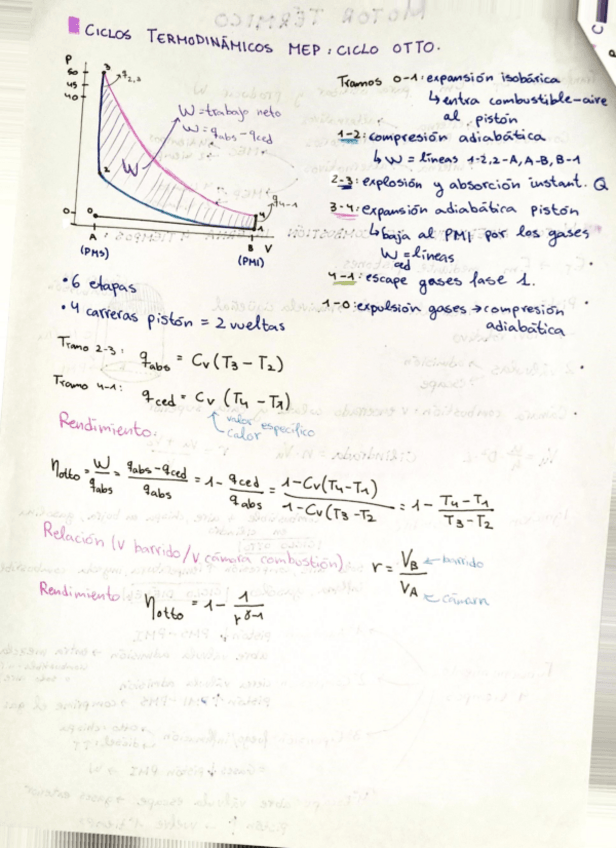 CICLOS TERMODINÁMICOS MEP: CICLO OTTO.
P
50
45
40
0
3
q2,3
2
W
W=trabajo neto
W=qabs-qced
q4-1
4
1
0
A
B
V
(PMS)
(PMI)
Tramos 0-1: expansión isobárica
↳entra combustible-aire
al pistón
1-2: compresión adiabática
↳ W = líneas 1-2, 2-A, A-B, B-1
2-3: explosión y absorción instant. Q
3-4: expansión adiabática pistón
↳baja al PMI por los gases
Wced = líneas
4-1: escape gases fase 1.
1-0: expulsión gases → compresión
adiabática
• 6 etapas
• 4 carreras pistón = 2 vueltas
Tramo 2-3: qabs = Cv (T3 - T2)
Tramo 4-1: qced = Cv (T4 - T1)
valor específico
calor
Rendimiento:
ηotto = W/qabs = qabs-qced/qabs = 1 - qced/qabs = 1-Cv(T4-T1)/1-Cv(T3-T2 = 1 - T4-T1/T3-T2
Relación (V barrido/V cámara combustión) r = VB/VA
← barrido
← cámara
Rendimiento: ηotto = 1 - 1/r^γ-1